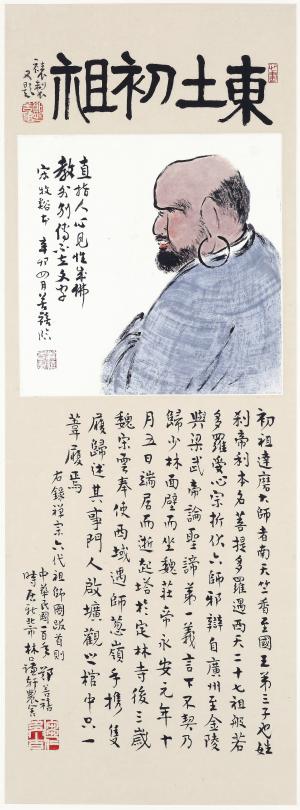 東土初祖
直指人心見性成佛
教外別傳不立文字
宗牧谿本 辛卯四月善禧
初祖達磨大師者南天竺香至國王第三子也姓
刹帝利本名菩提多羅遇西天二十七祖般若
多羅受心宗折伏六師邪辯自廣州至金陵
與梁武帝論聖諦第一義言下不契乃
歸少林面壁而坐魏莊帝永安元年十
月五日端居而逝起塔於定林寺後三歲
魏宗雲奉使西域遇師蔥嶺手携隻
履歸述其事門人啟壙觀之棺中只一
葦履焉
右錄禪宗六代祖師圖跋首則
中華民國一百年鄭善禧
時居新北市林口